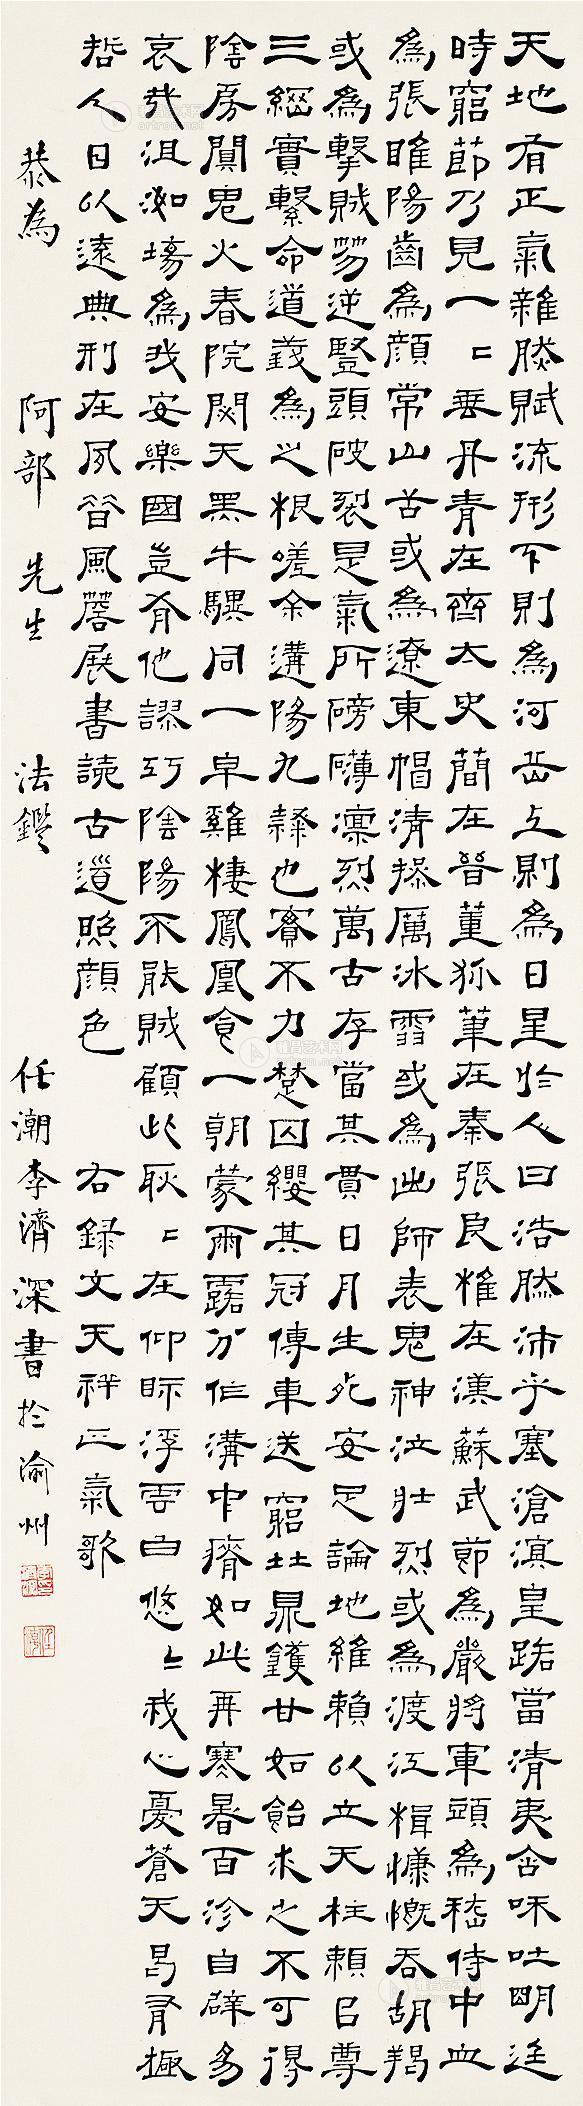 天地有正氣雜然賦流形下則為河岳上則為日星於人曰浩然沛乎塞滄溟皇路當清夷含咊吐明廷
時窮節乃見一〻垂丹青在齊太史簡在晉董狐筆在秦張良椎在漢蘇武節為嚴將軍頭為嵇侍中血
為張睢陽齒為顏常山舌或為遼東帽清操厲冰雪或為出師表鬼神泣壯烈或為渡江楫慷慨吞胡羯
或為擊賊笏逆豎頭破裂是氣所磅礴凜烈萬古存當其貫日月生死安足論地維賴以立天柱賴以尊
三綱實繫命道義為之根嗟余遘陽九隸也實不力楚囚纓其冠傳車送窮北鼎鑊甘如飴求之不可得
陰房闃鬼火春院閟天黑牛驥同一皁雞棲鳳凰食一朝蒙雨露分作溝中瘠如此再寒暑百沴自辟易
哀哉沮洳場為我安樂國豈有他謬巧陰陽不能賊顧此耿〻在仰眎浮雲白悠〻我心憂蒼天曷有極
哲人日以遠典刑在夙昔風簷展書讀古道照顏色 右錄文天祥正氣歌
恭為 阿部 先生 法鑑 任潮李濟深書於渝州
雅昌艺术网
artron.net